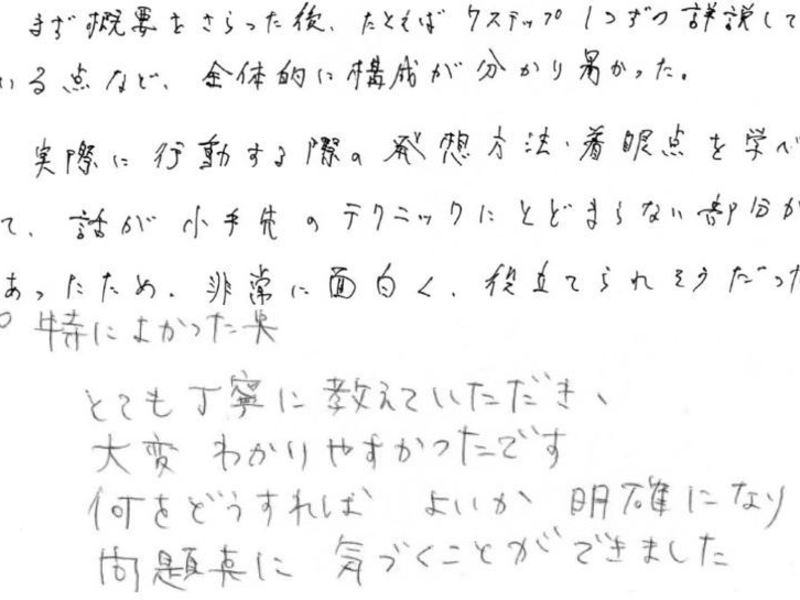 まず概要をさらった後、たとえば7ステップ1つずつ詳説して
いる点など、全体的に構成が分かり易かった。
実際に行動する際の発想方法・着眼点を学べ
て、話が小手先のテクニックにとどまらない部分が
あったため、非常に面白く、役立てられそうだった
特によかった点
とても丁寧に教えていただき、
大変わかりやすかったです
何をどうすれば よいか 明確になり
問題点に 気づくことができました